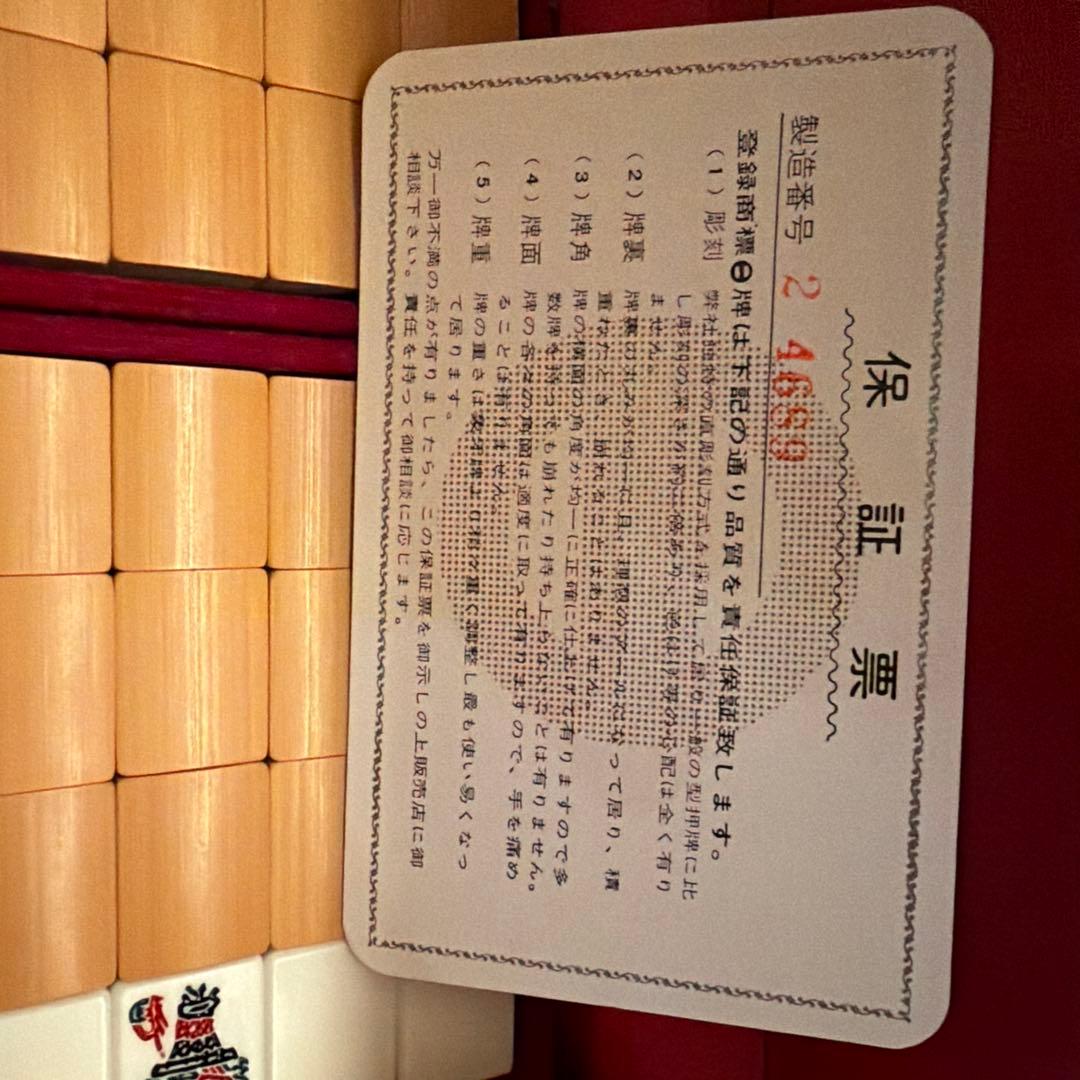 保証票
製造番号 2 4689
登録商標⊖牌は下記の通り品質を責任保証致します。
(1) 彫刻 弊社独特の直彫刻方式を採用して居り、一般の型押牌に比
し彫刻の深さが約二倍あり、色はげ等の心配は全く有り
ません。
(2) 牌裏 牌裏の丸みが均一に且、理想のアールになって居り、積
重ねたとき、崩れることはありません。
(3) 牌角 牌の横面の角度が均一に正確に仕上げて有りますので多
数牌を持っても崩れたり持ち上らないことは有りません。
(4) 牌面 牌の各々の角面は適度に取って有りますので、手を痛め
ることは有りません。
(5) 牌重 牌の重さは象牙牌より稍々重く調整し最も使い易くなっ
て居ります。
万一御不満の点が有りましたら、この保証票を御示しの上販売店に御
相談下さい。責任を持って御相談に応じます。